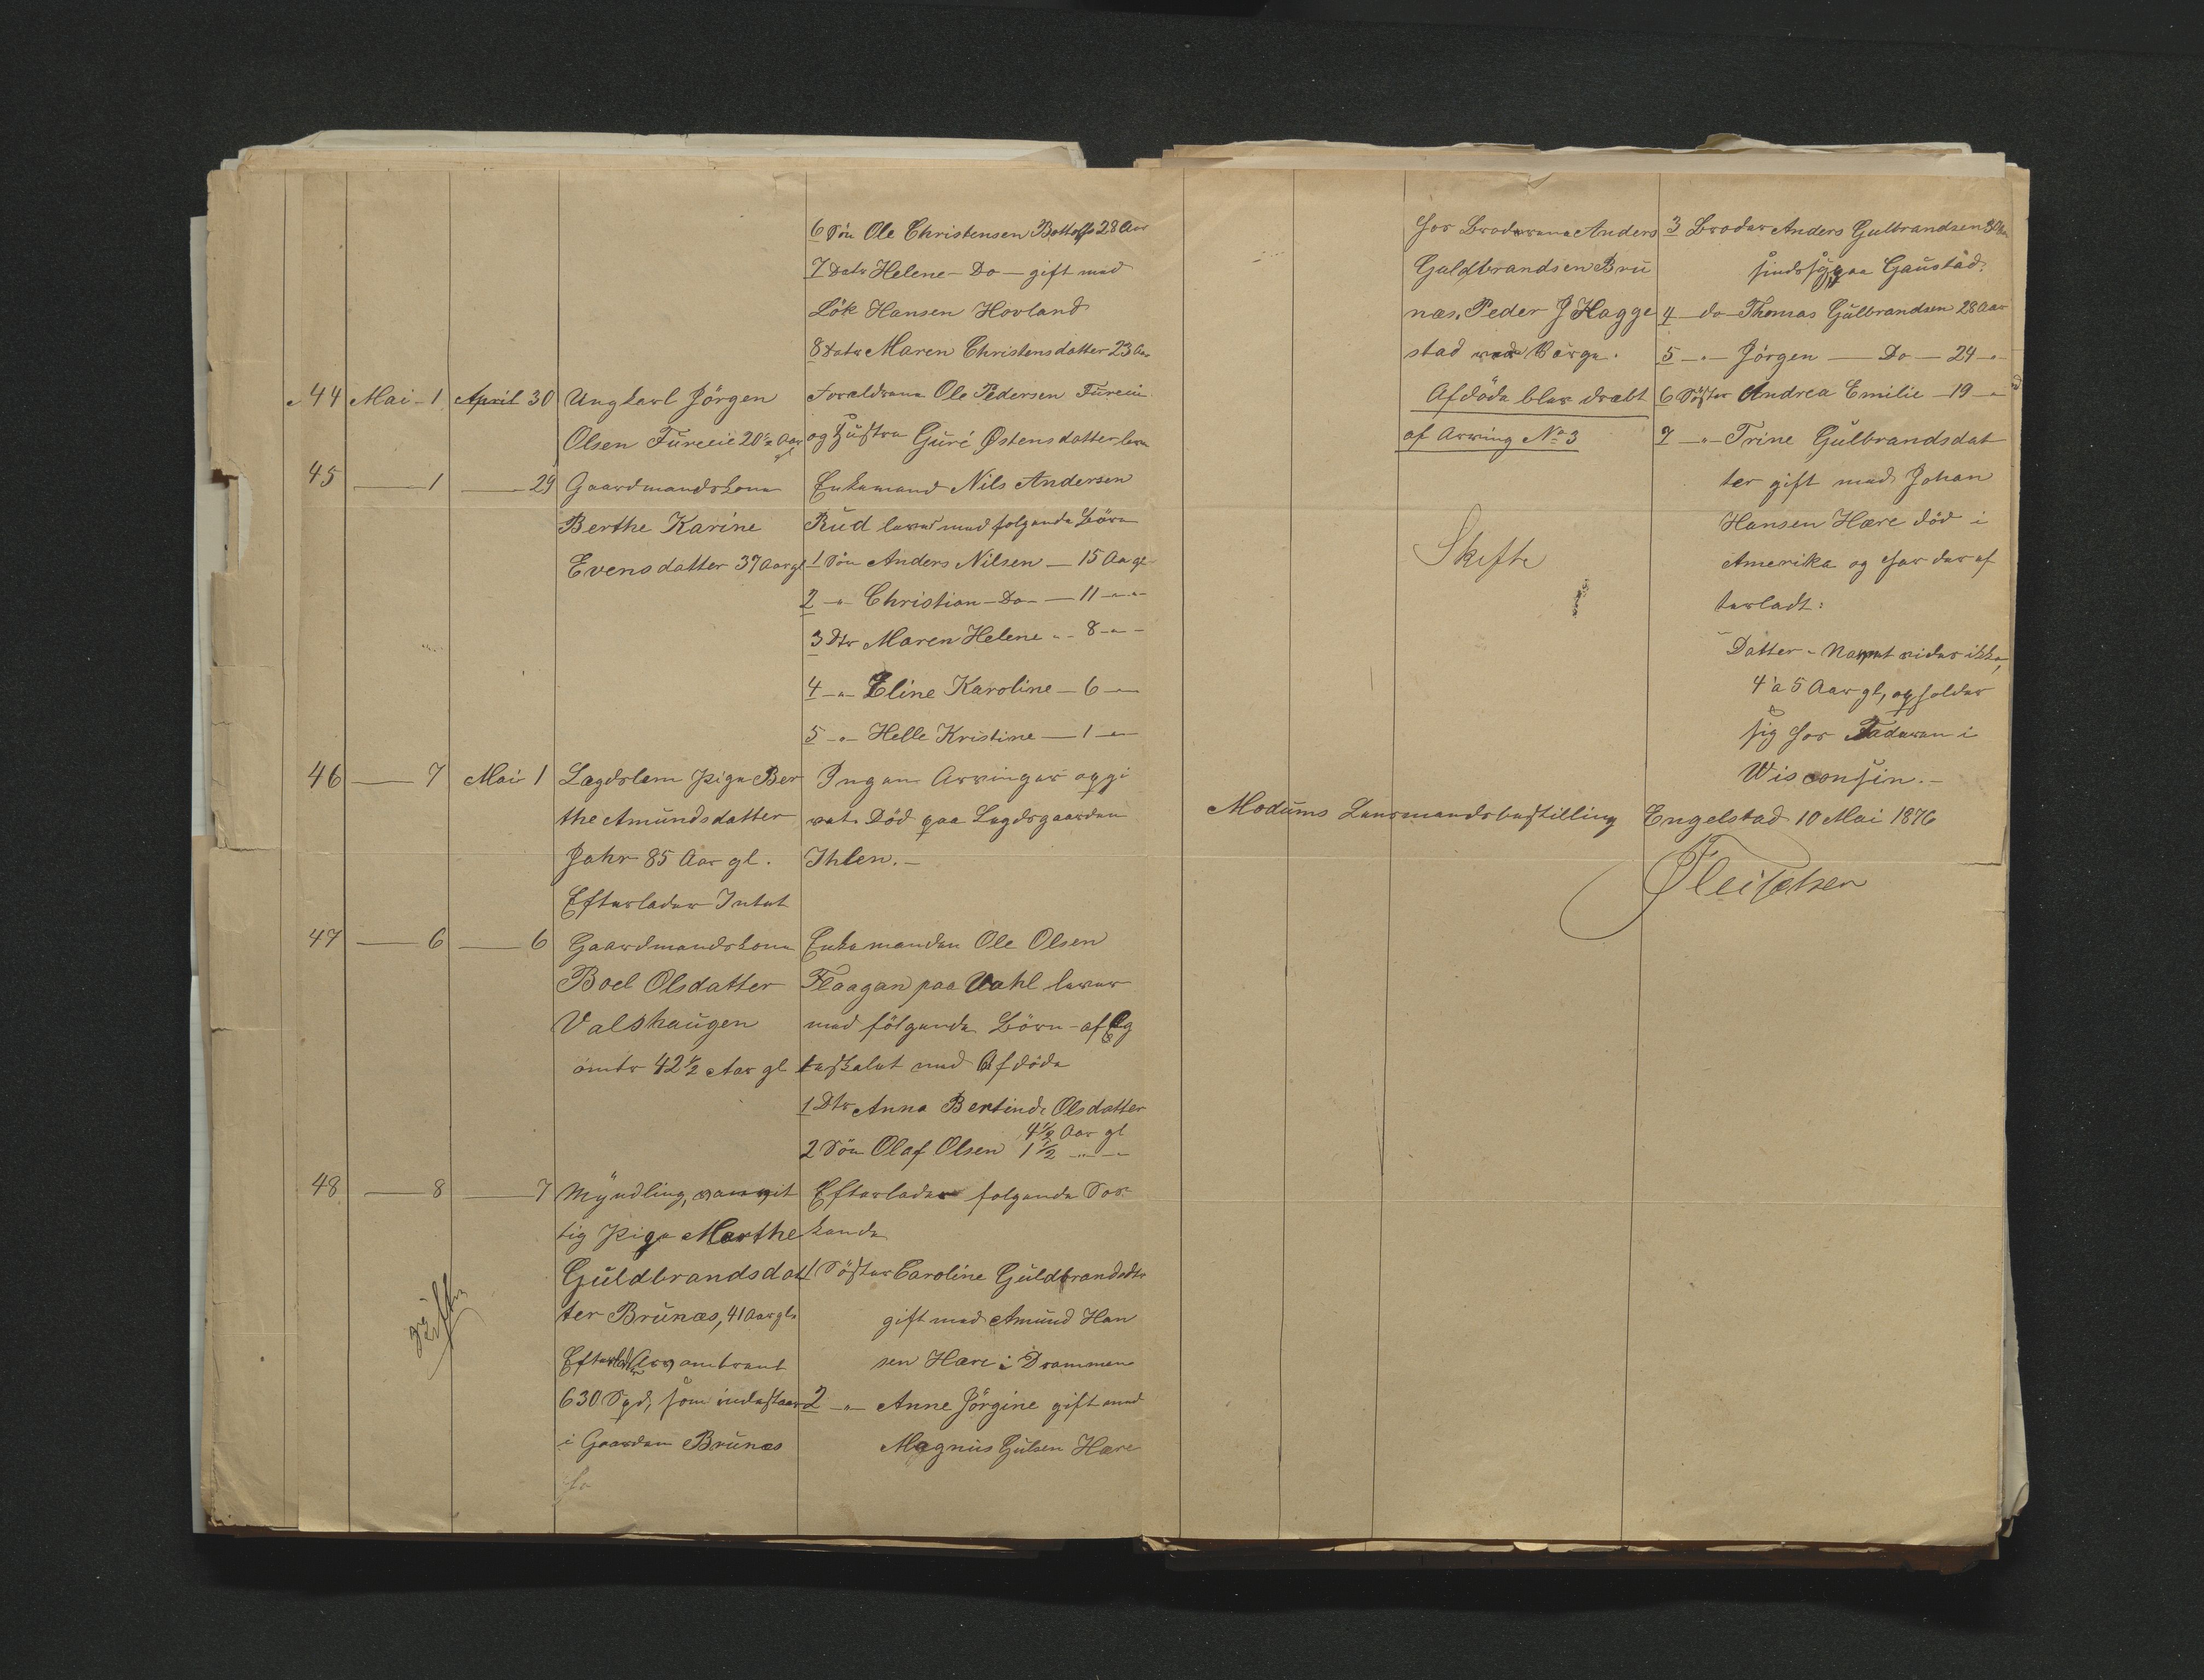 6 Søn Ole Christensen Bottolfs 28 Aar
7 Datr Helene - Do - gift med
Lök Hansen Hovland
8 Datr Maren Christensdatter 23 Aar
44 Mai - 1 April 30 Ungkarl Jörgen Forældrene Ole Pedersen Fureeie
Olsen Fureeie 20½ Aar gl og Hustru Guré Østensdatter leve
45 — 1 — 29 Gaardmandskone Enkemand Nils Andersen
Berthe Karine Rud lever med folgende Börn
Evensdatter 37 Aar gl 1 Sön Anders Nilsen — 15 Aar gl
2 -"- Christian - Do - — 11 -"-
3 Dtr Maren Helene " - 8 -"-
4 -"- Eline Karoline - 6 -"-
5 -"- Helle Kristine — 1 -"-
46 — 7 Mai 1 Lægdslem Pige Ber Ingen Arvinger opgi
the Amundsdatter vet. Död paa Lægdsgaarden
Jahr 85 Aar gl. Ihlen. -
Efterlader Intet
47 — 6 — 6 Gaardmandskone Enkemanden Ole Olsen
Boel Olsdatter Flaagan paa Vahl lever
Valshaugen med fölgende Börn - af Eg
omtr 42½ Aar gl teskabet med Afdöde
1 Dtr Anna Bertinde Olsdatter
4½ Aar gl
2 Sön Olaf Olsen 1½ -"-
48 — 8 — 7 Myndling, vanvit Efterlader folgende Sos
tig Pige Marthe kende
Guldbrandsdat 1 Söster Caroline Guldbrandsdtr
ter Brunæs, 41 Aar gl. gift med Amund Han
Efterlader Arv omtrent sen Hære i Drammen
630 Spd, som indestaar 2 -"- Anne Jörgine gift med
i Gaarden Brunæs Magnus Gulsen Hære
Skifte
hos Brodrene Anders 3 Broder Anders Gulbrandsen
Guldbrandsen Bru sindssyg paa Gaustad.
næs. Peder J Hagge 4 - do - Thomas Gulbrandsen 28 Aar
stad verge. 5 -"- Jörgen — Do — 24 -"-
Afdöde blev dræbt 6 Söster Andrea Emilie - 19 -"-
af Arving No 3 7 -"- Trine Gulbrandsdat
ter gift med Johan
Hansen Hære död i
Skifte
Amerika og har der ef
terladt:
Datter - Navnet vides ikke,
4 à 5 Aar gl, opholder
sig hos Faderen i
Wisconsin. -
Modums Lensmandsbestilling Engelstad 10 Mai 1876
Fleischer